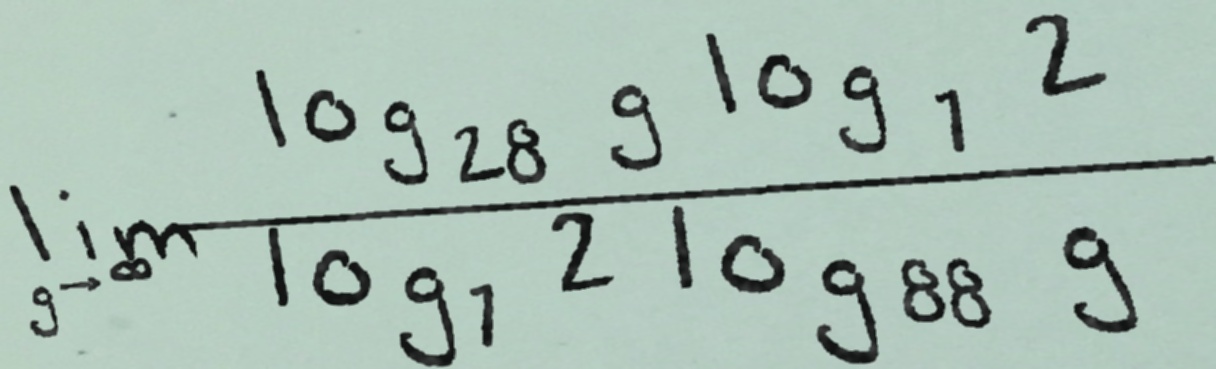 \lim_{g \to \infty} \frac{\log_{28} g \log_{7} 2}{\log_{7} 2 \log_{88} g}